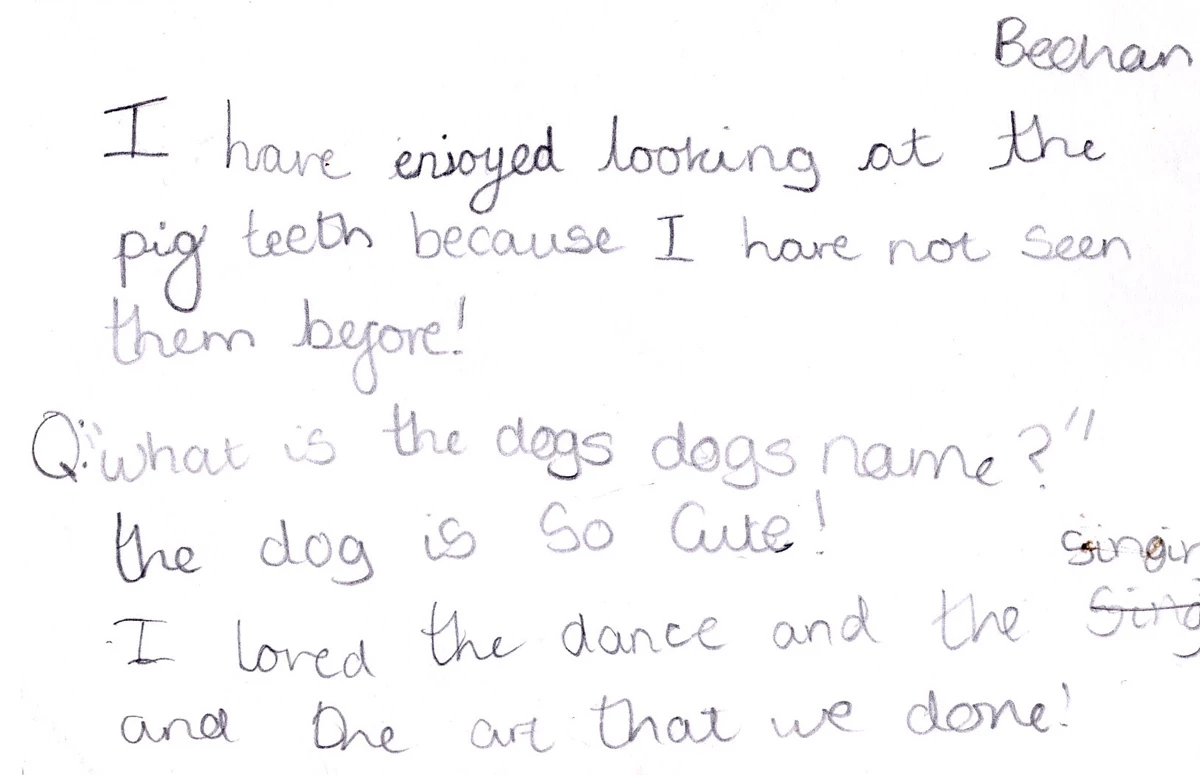 Beehan
I have enjoyed looking at the
pig teeth because I have not seen
them before!
Q: "what is the dogs dogs name?"
the dog is so cute!
singin
I loved the dance and the sing
and the art that we done!